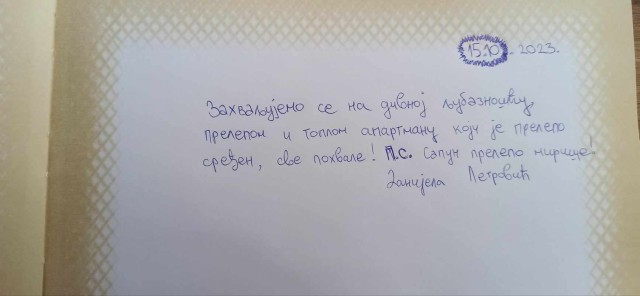 15.10. 2023.
Захваљујемо се на дивној љубазношћу,
прелепом и топлом апартману који је прелепо
сређен, све похвале! П.С. Сапун прелепо мирише!
Данијела Петровић